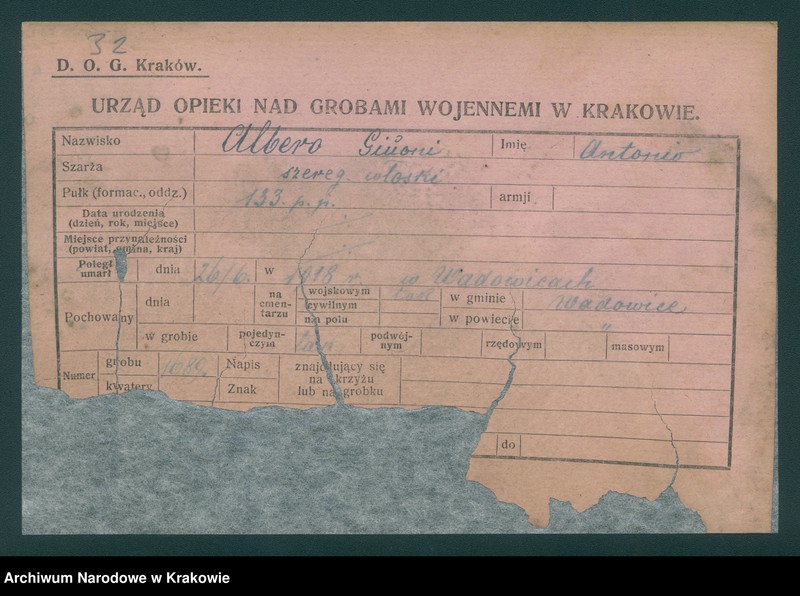 32
D. O. G. Kraków.
URZĄD OPIEKI NAD GROBAMI WOJENNEMI W KRAKOWIE.
Nazwisko Albero Imię Antonio
Szarża szereg. włoski
Pułk (formac., oddz.) 133. p. p. armji
Data urodzenia
(dzień, rok, miejsce)
Miejsce przynależności
(powiat, gmina, kraj)
Poległ
umarł dnia 26/6. w 1918 r. w Wadowicach
Pochowany dnia na cmentarzu wojskowym
cywilnym
na polu
w gminie Wadowice
w powiecie "
w grobie pojedyńczym podwójnym rzędowym masowym
Numer grobu 1089.
kwatery
Napis
Znak
znajdujący się
na krzyżu
lub nagrobku
do
Archiwum Narodowe w Krakowie